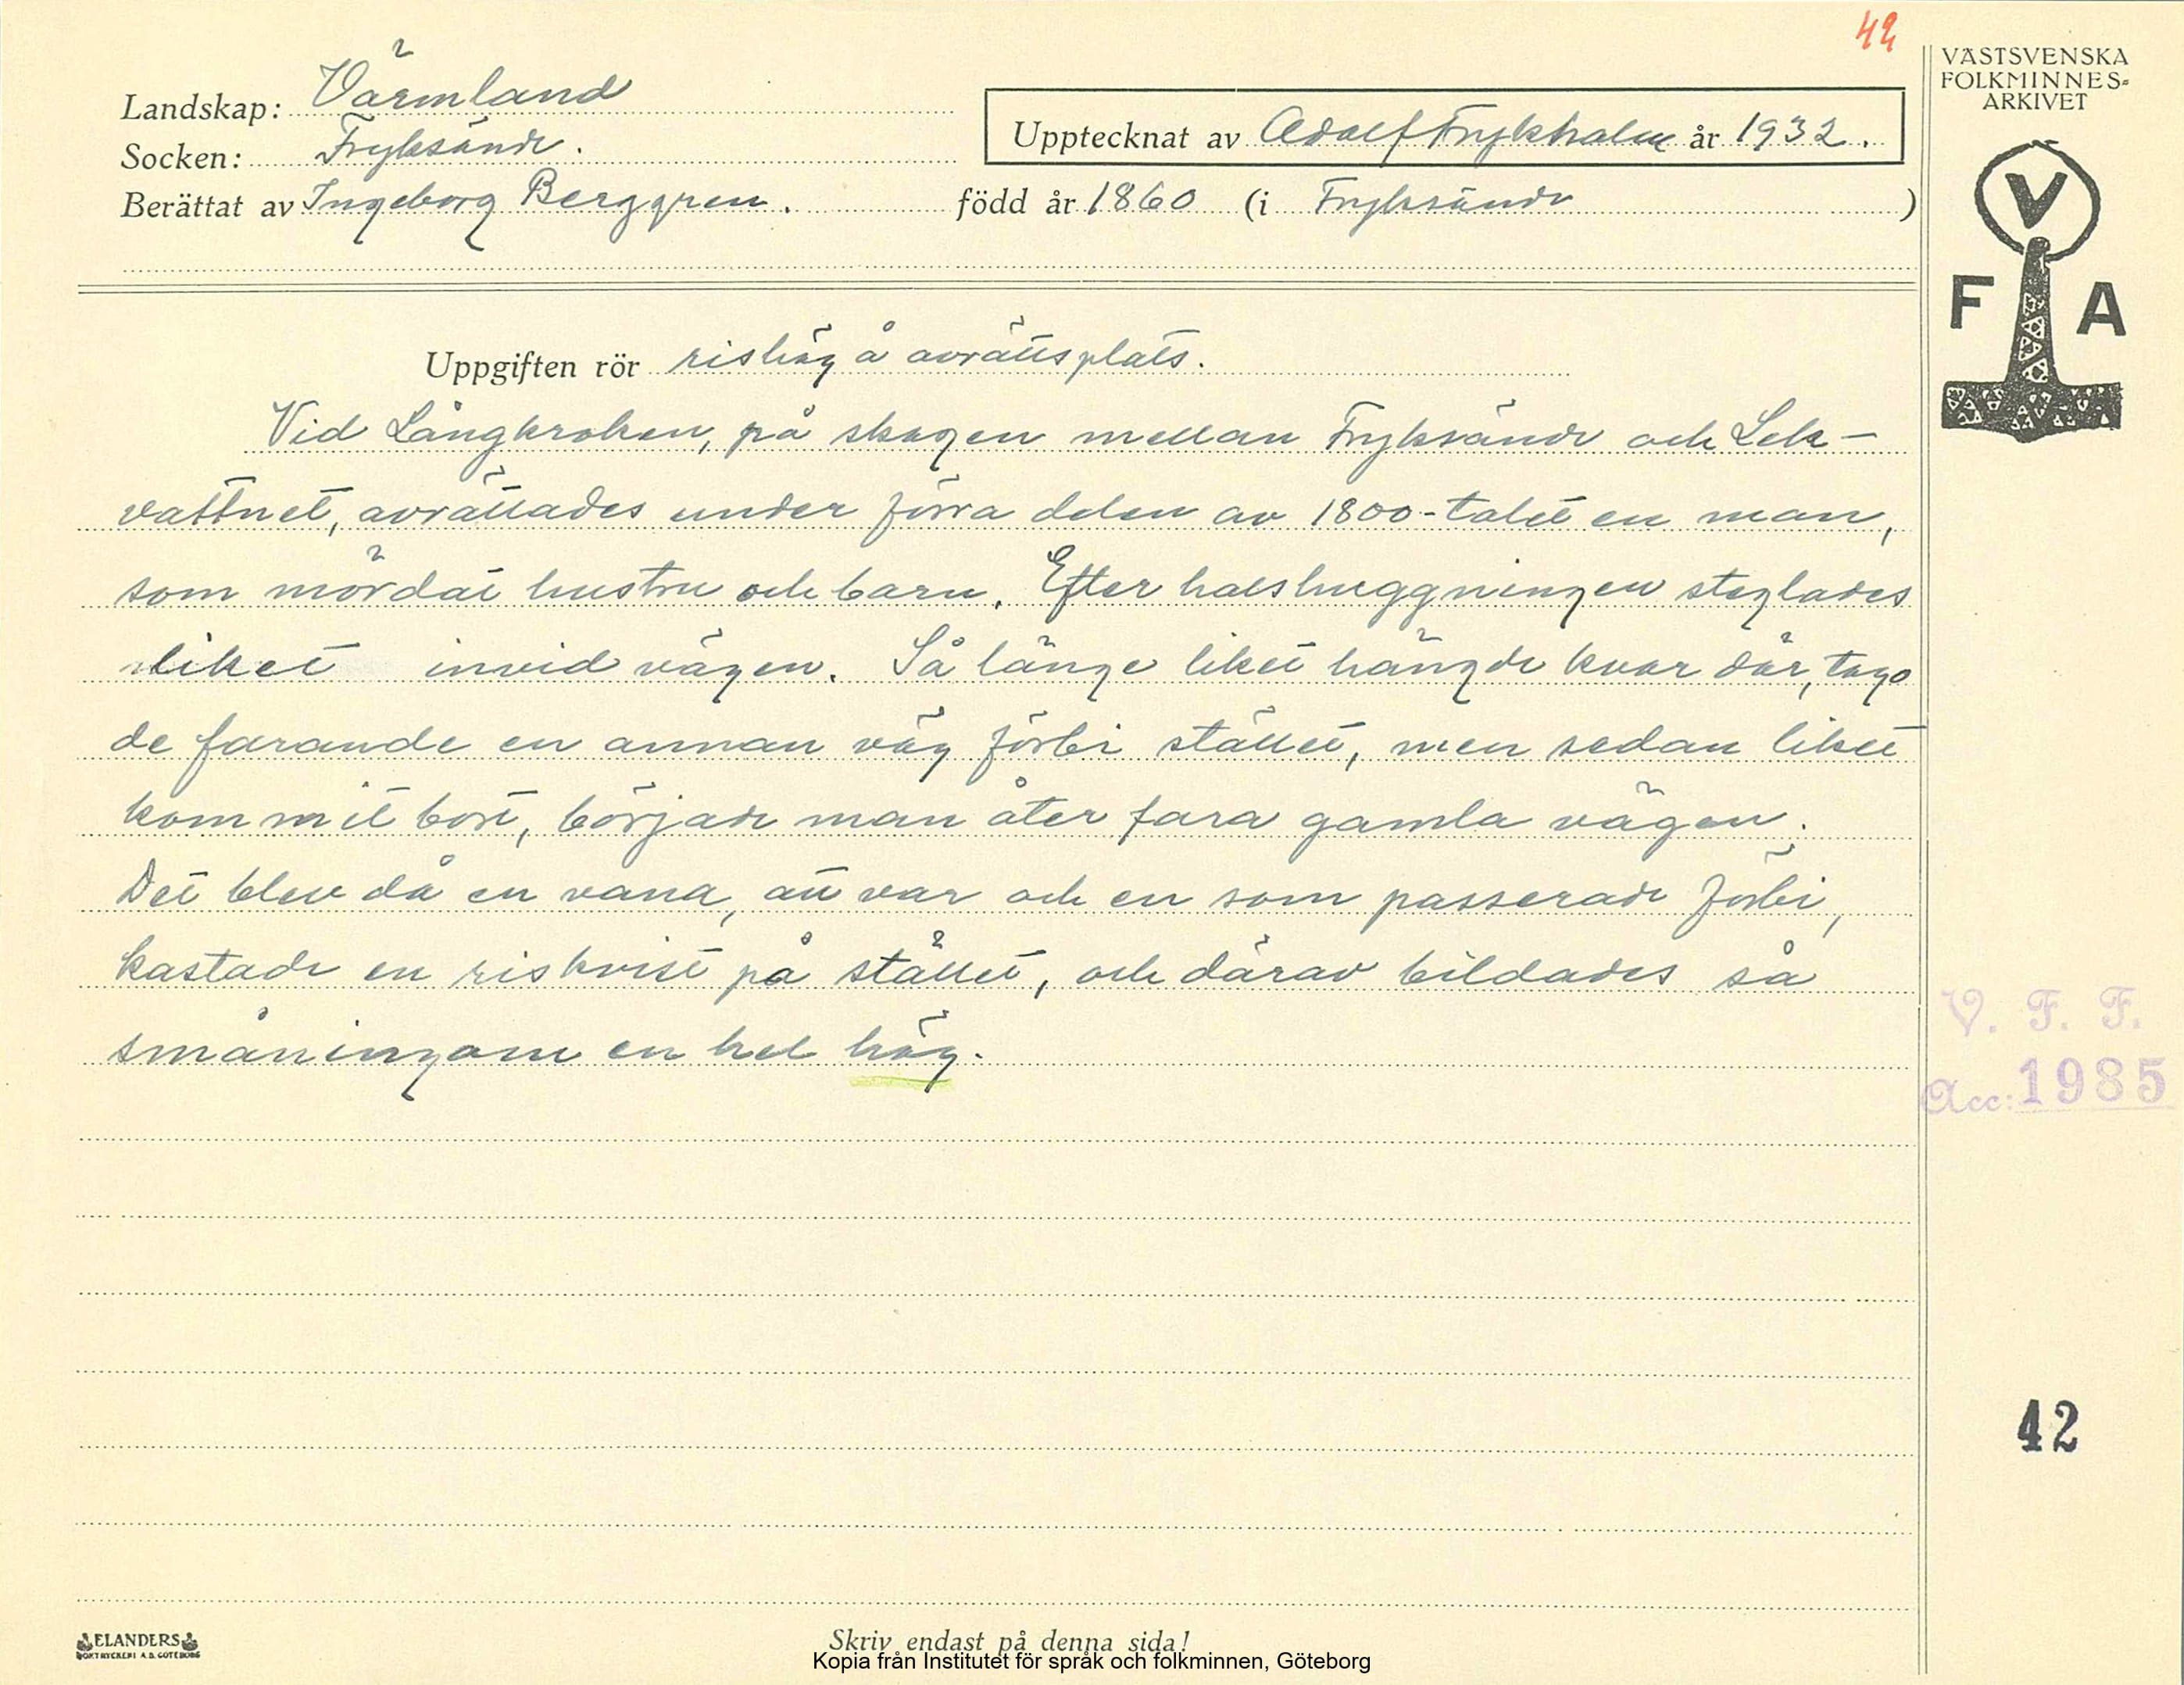 42
VÄSTSVENSKA
FOLKMINNES-
ARKIVET
Landskap: Värmland
Socken: Fryksände.
Upptecknat av Adolf Frykholm år 1932.
Berättat av Ingeborg Berggren. född år 1860 (i Fryksände)
V
F A
Uppgiften rör rishög å avrättsplats.
Vid Långkroken, på skogen mellan Fryksände och Lek-
vattnet, avrättades under förra delen av 1800-talet en man,
som mördat hustru och barn. Efter halshuggningen steglades
liket invid vägen. Så länge liket hängde kvar där, togo
de farande en annan väg förbi stället, men sedan liket
kommit bort, började man åter fara gamla vägen.
Det blev då en vana, att var och en som passerade förbi,
kastade en riskvist på stället, och därav bildades så
småningom en hel hög.
V. F. F.
Acc: 1985
42
ELANDERS
BOKTRYCKERI A.B. GÖTEBORG
Skriv endast på denna sida!
Kopia från Institutet för språk och folkminnen, Göteborg